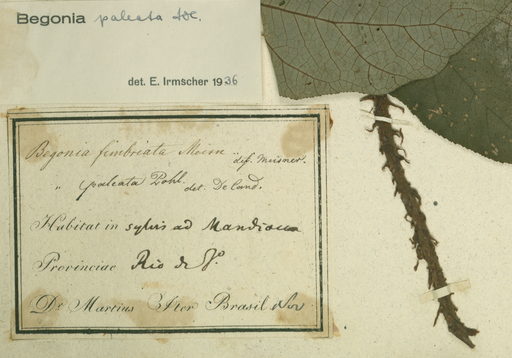 Begonia paleata ADC.
det. E. Irmscher 1936
Begonia fimbriata Moern .. def. Meisner.
" paleata Pohl. det. De Cand.
Habitat in sylvis ad Mandiocca
Provinciae Rio de J.º
Dr Martius Iter Brasil